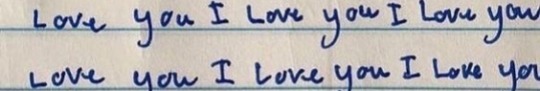 Love you I Love you I Love you
Love you I Love you I Love you